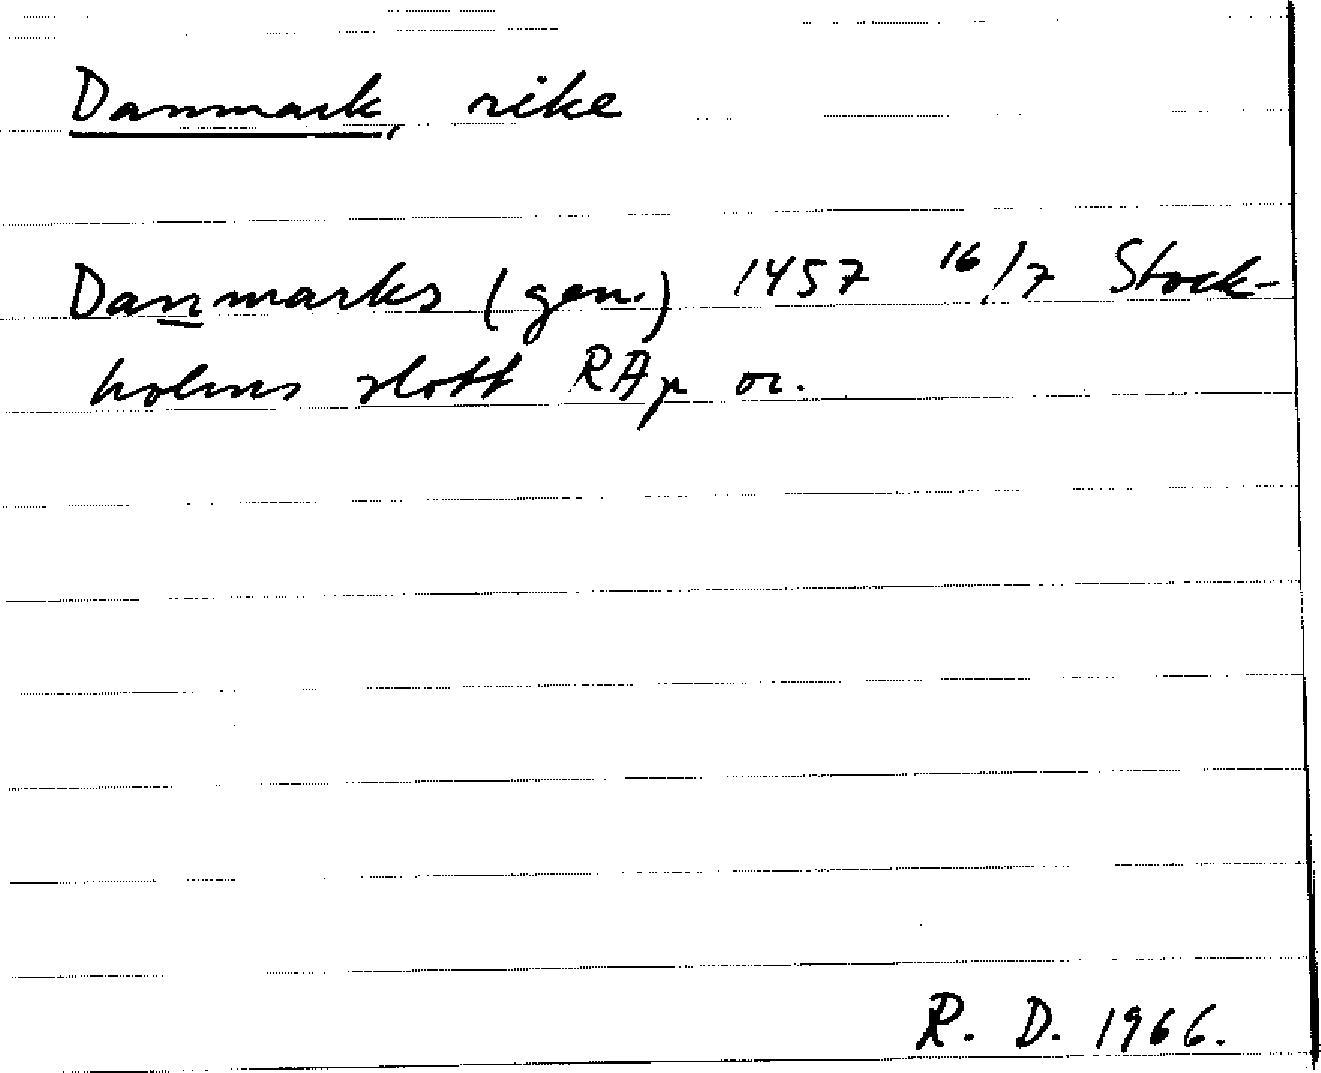 Danmark, rike
Danmarks (gen.) 1457 16/7 Stock-
holms slott RAp or.
R. D. 1966.